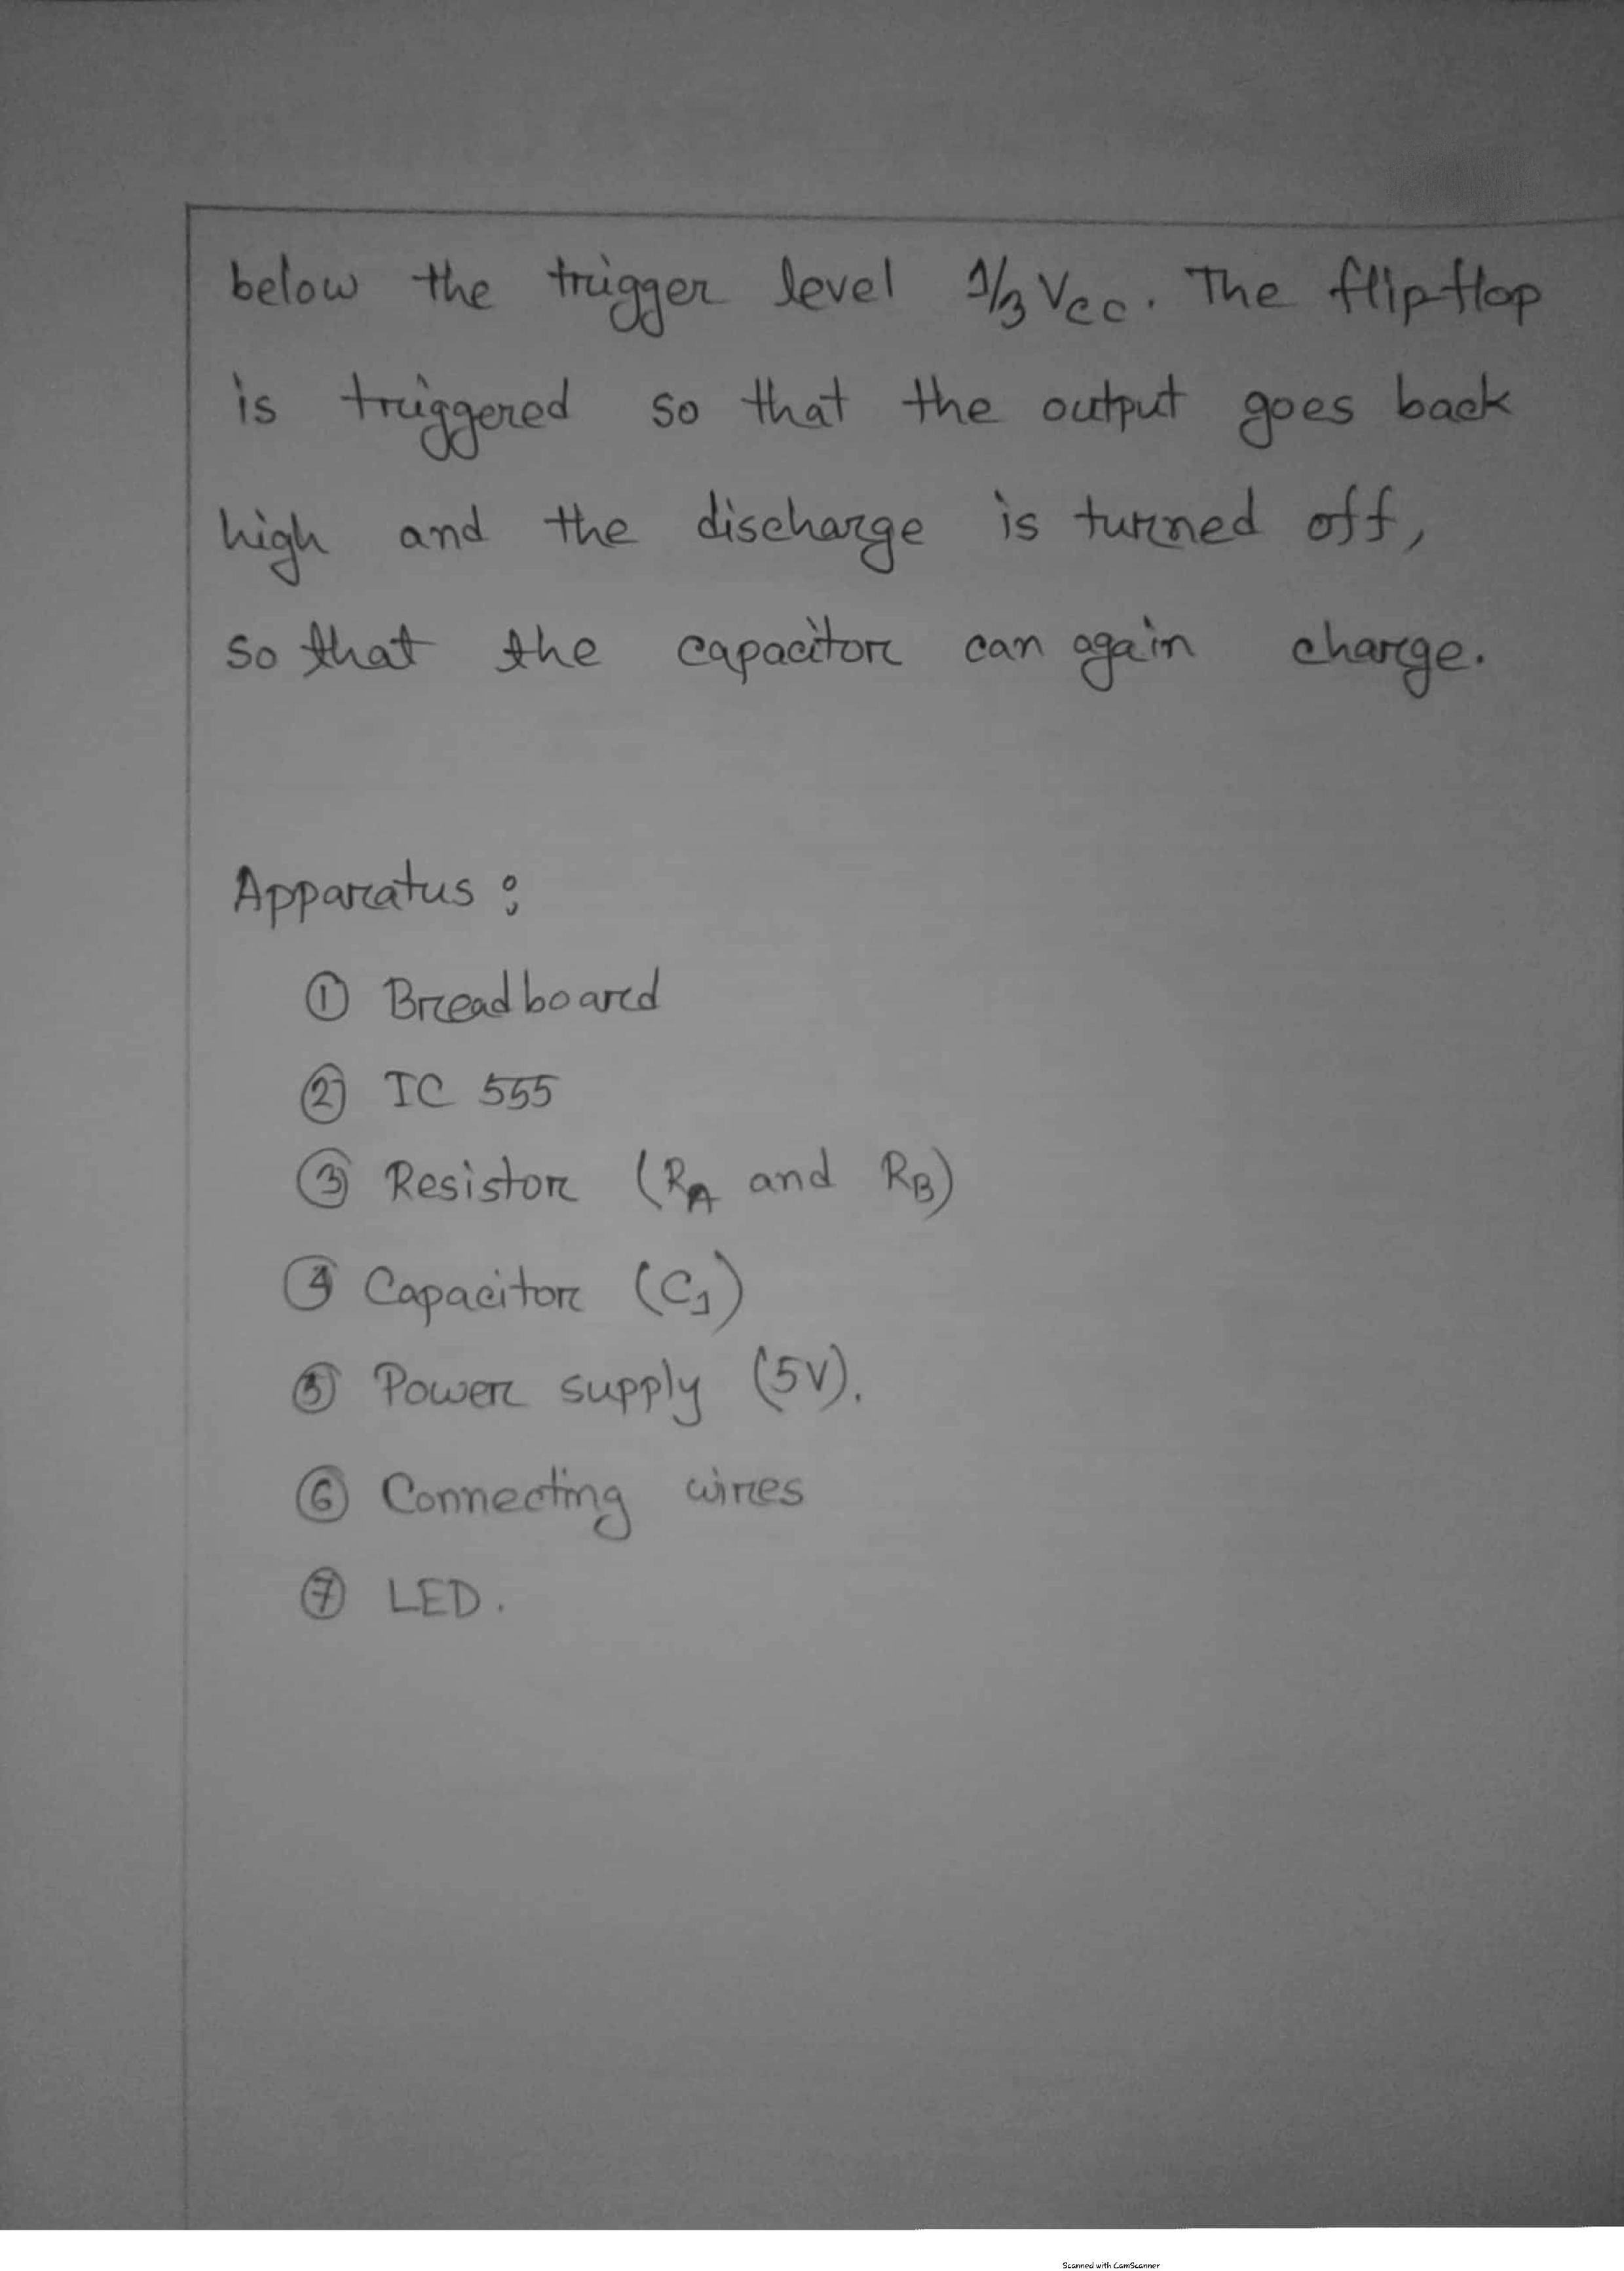 below the trigger level 1/3 Vcc. The flipflop
is triggered so that the output goes back
high and the discharge is turned off,
so that the capacitor can again charge.
Apparatus :
① Breadboard
② IC 555
③ Resistor (RA and RB)
④ Capacitor (C1)
⑤ Power supply (5V).
⑥ Connecting wires
⑦ LED.
Scanned with CamScanner